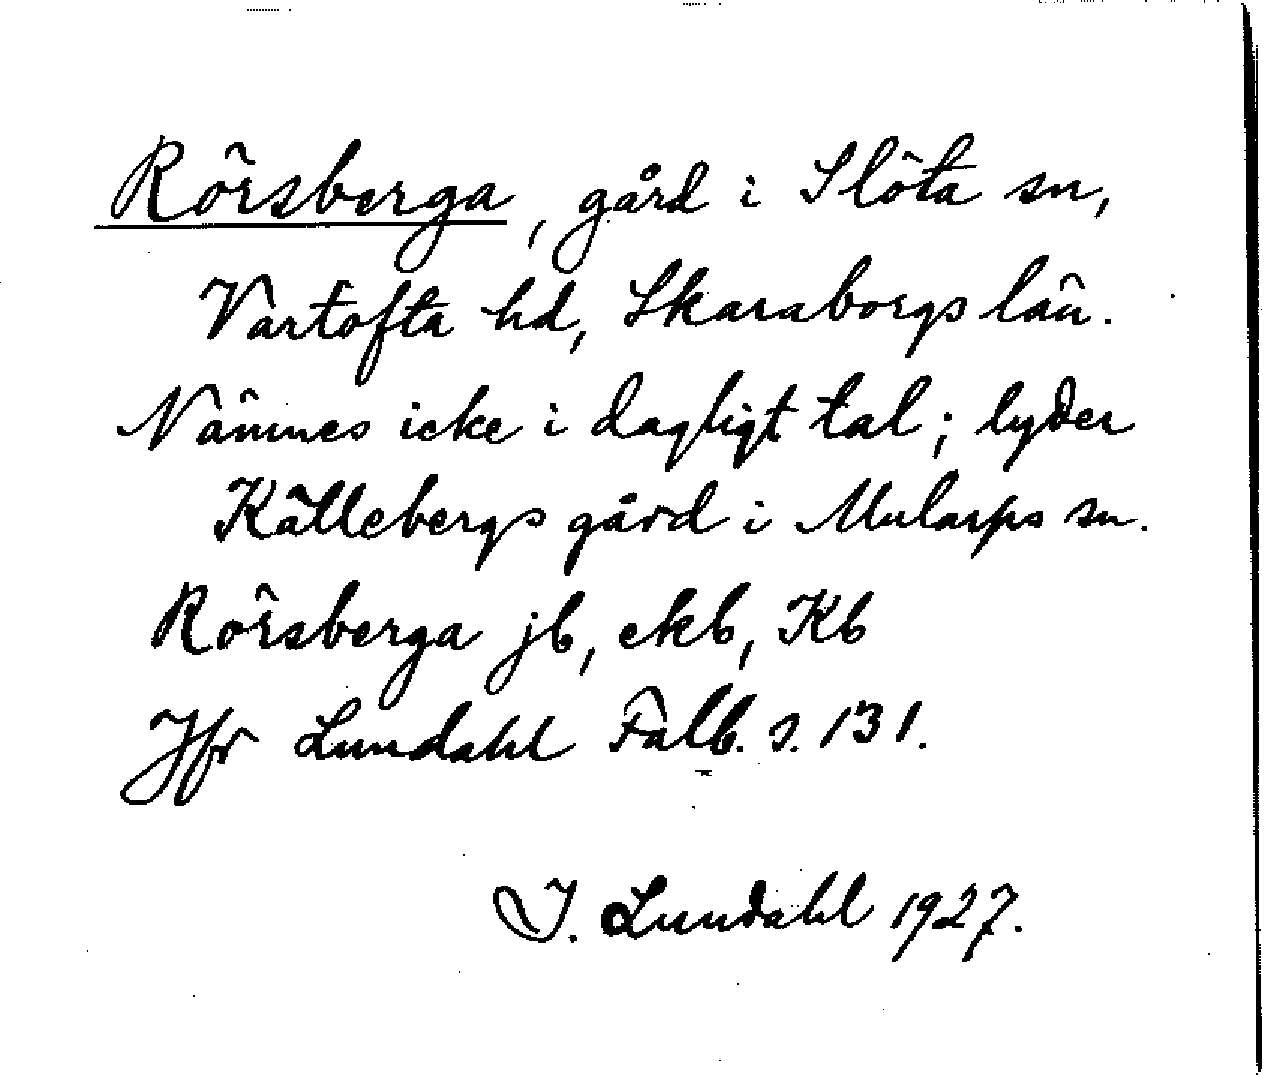 Rörsberga, gård i Slöta sn,
Vartofta hd, Skaraborgs län.
Nämnes icke i dagligt tal; lyder
Källebergs gård i Mularps sn.
Rörsberga jb, ekb, Kb
Jfr Lundahl Falb. s. 131.
I. Lundahl 1927.